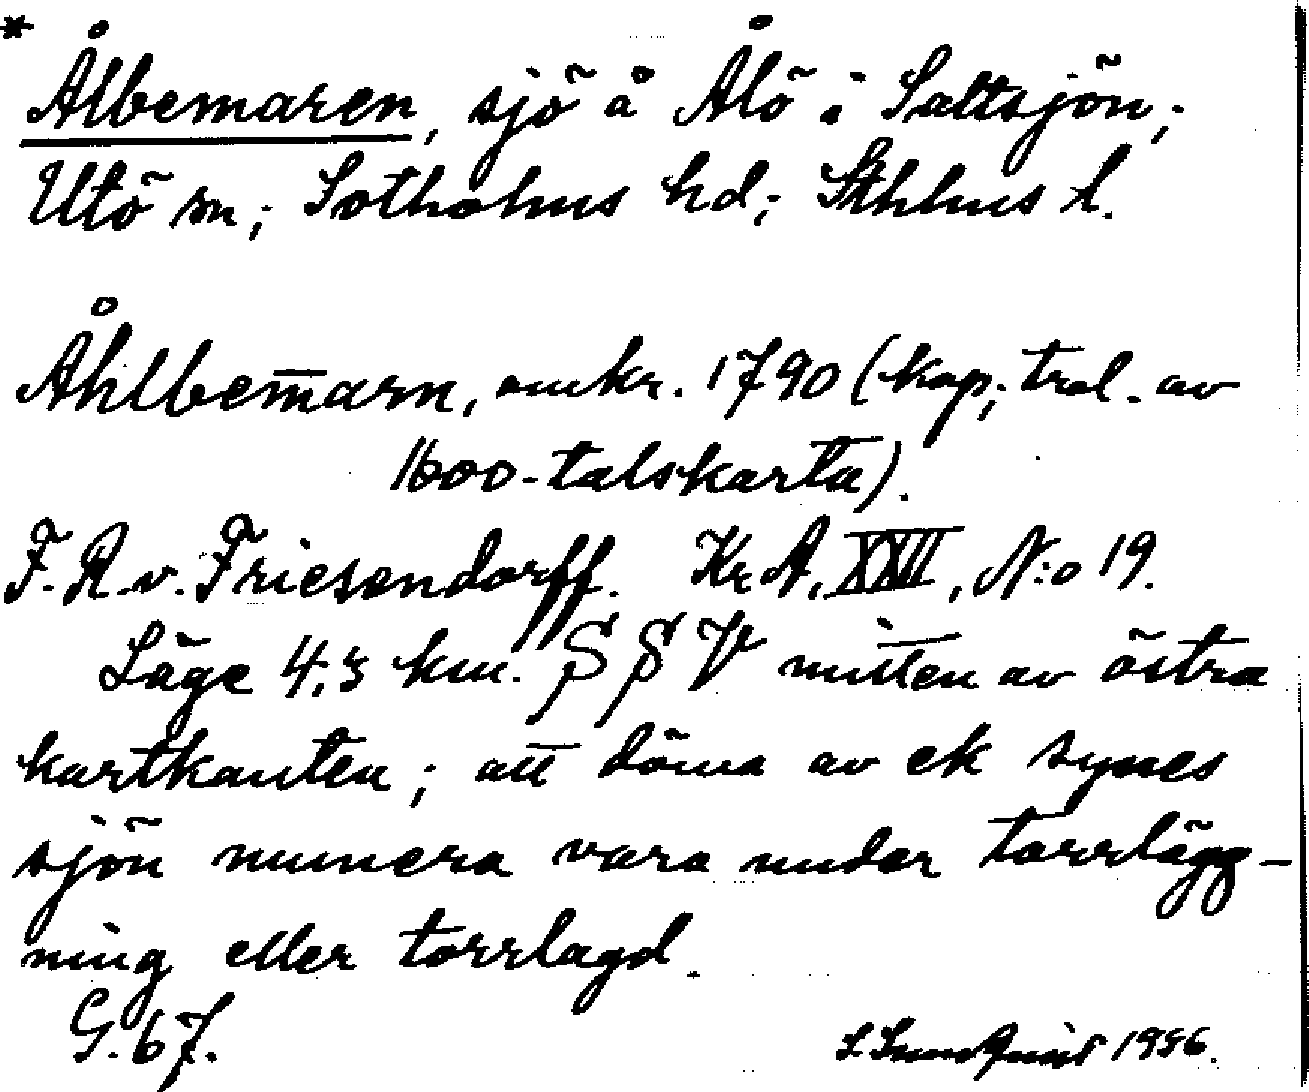 * Ålbemaren, sjö å Ålö i Saltsjön;
Utö sn; Sotholms hd; Sthlms l.
Åhlbem̅arn, omkr. 1790 (kop; trol. av
1600-talskarta).
F. R. v. Friesendorff. Kr. A, XXII, N:o 19.
Läge 4,3 km. SSV mitten av östra
kartkanten; att döma av ek synes
sjön numera vara under torrlägg-
ning eller torrlagd.
G. 67.
S. Sundquist 1956.